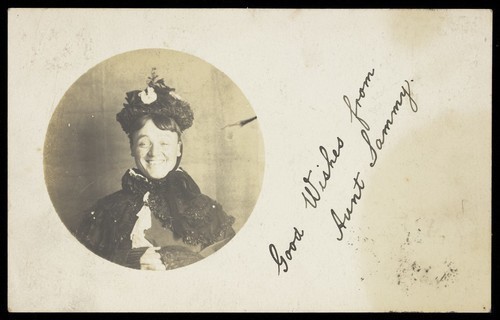 Good Wishes from
Aunt Sammy.